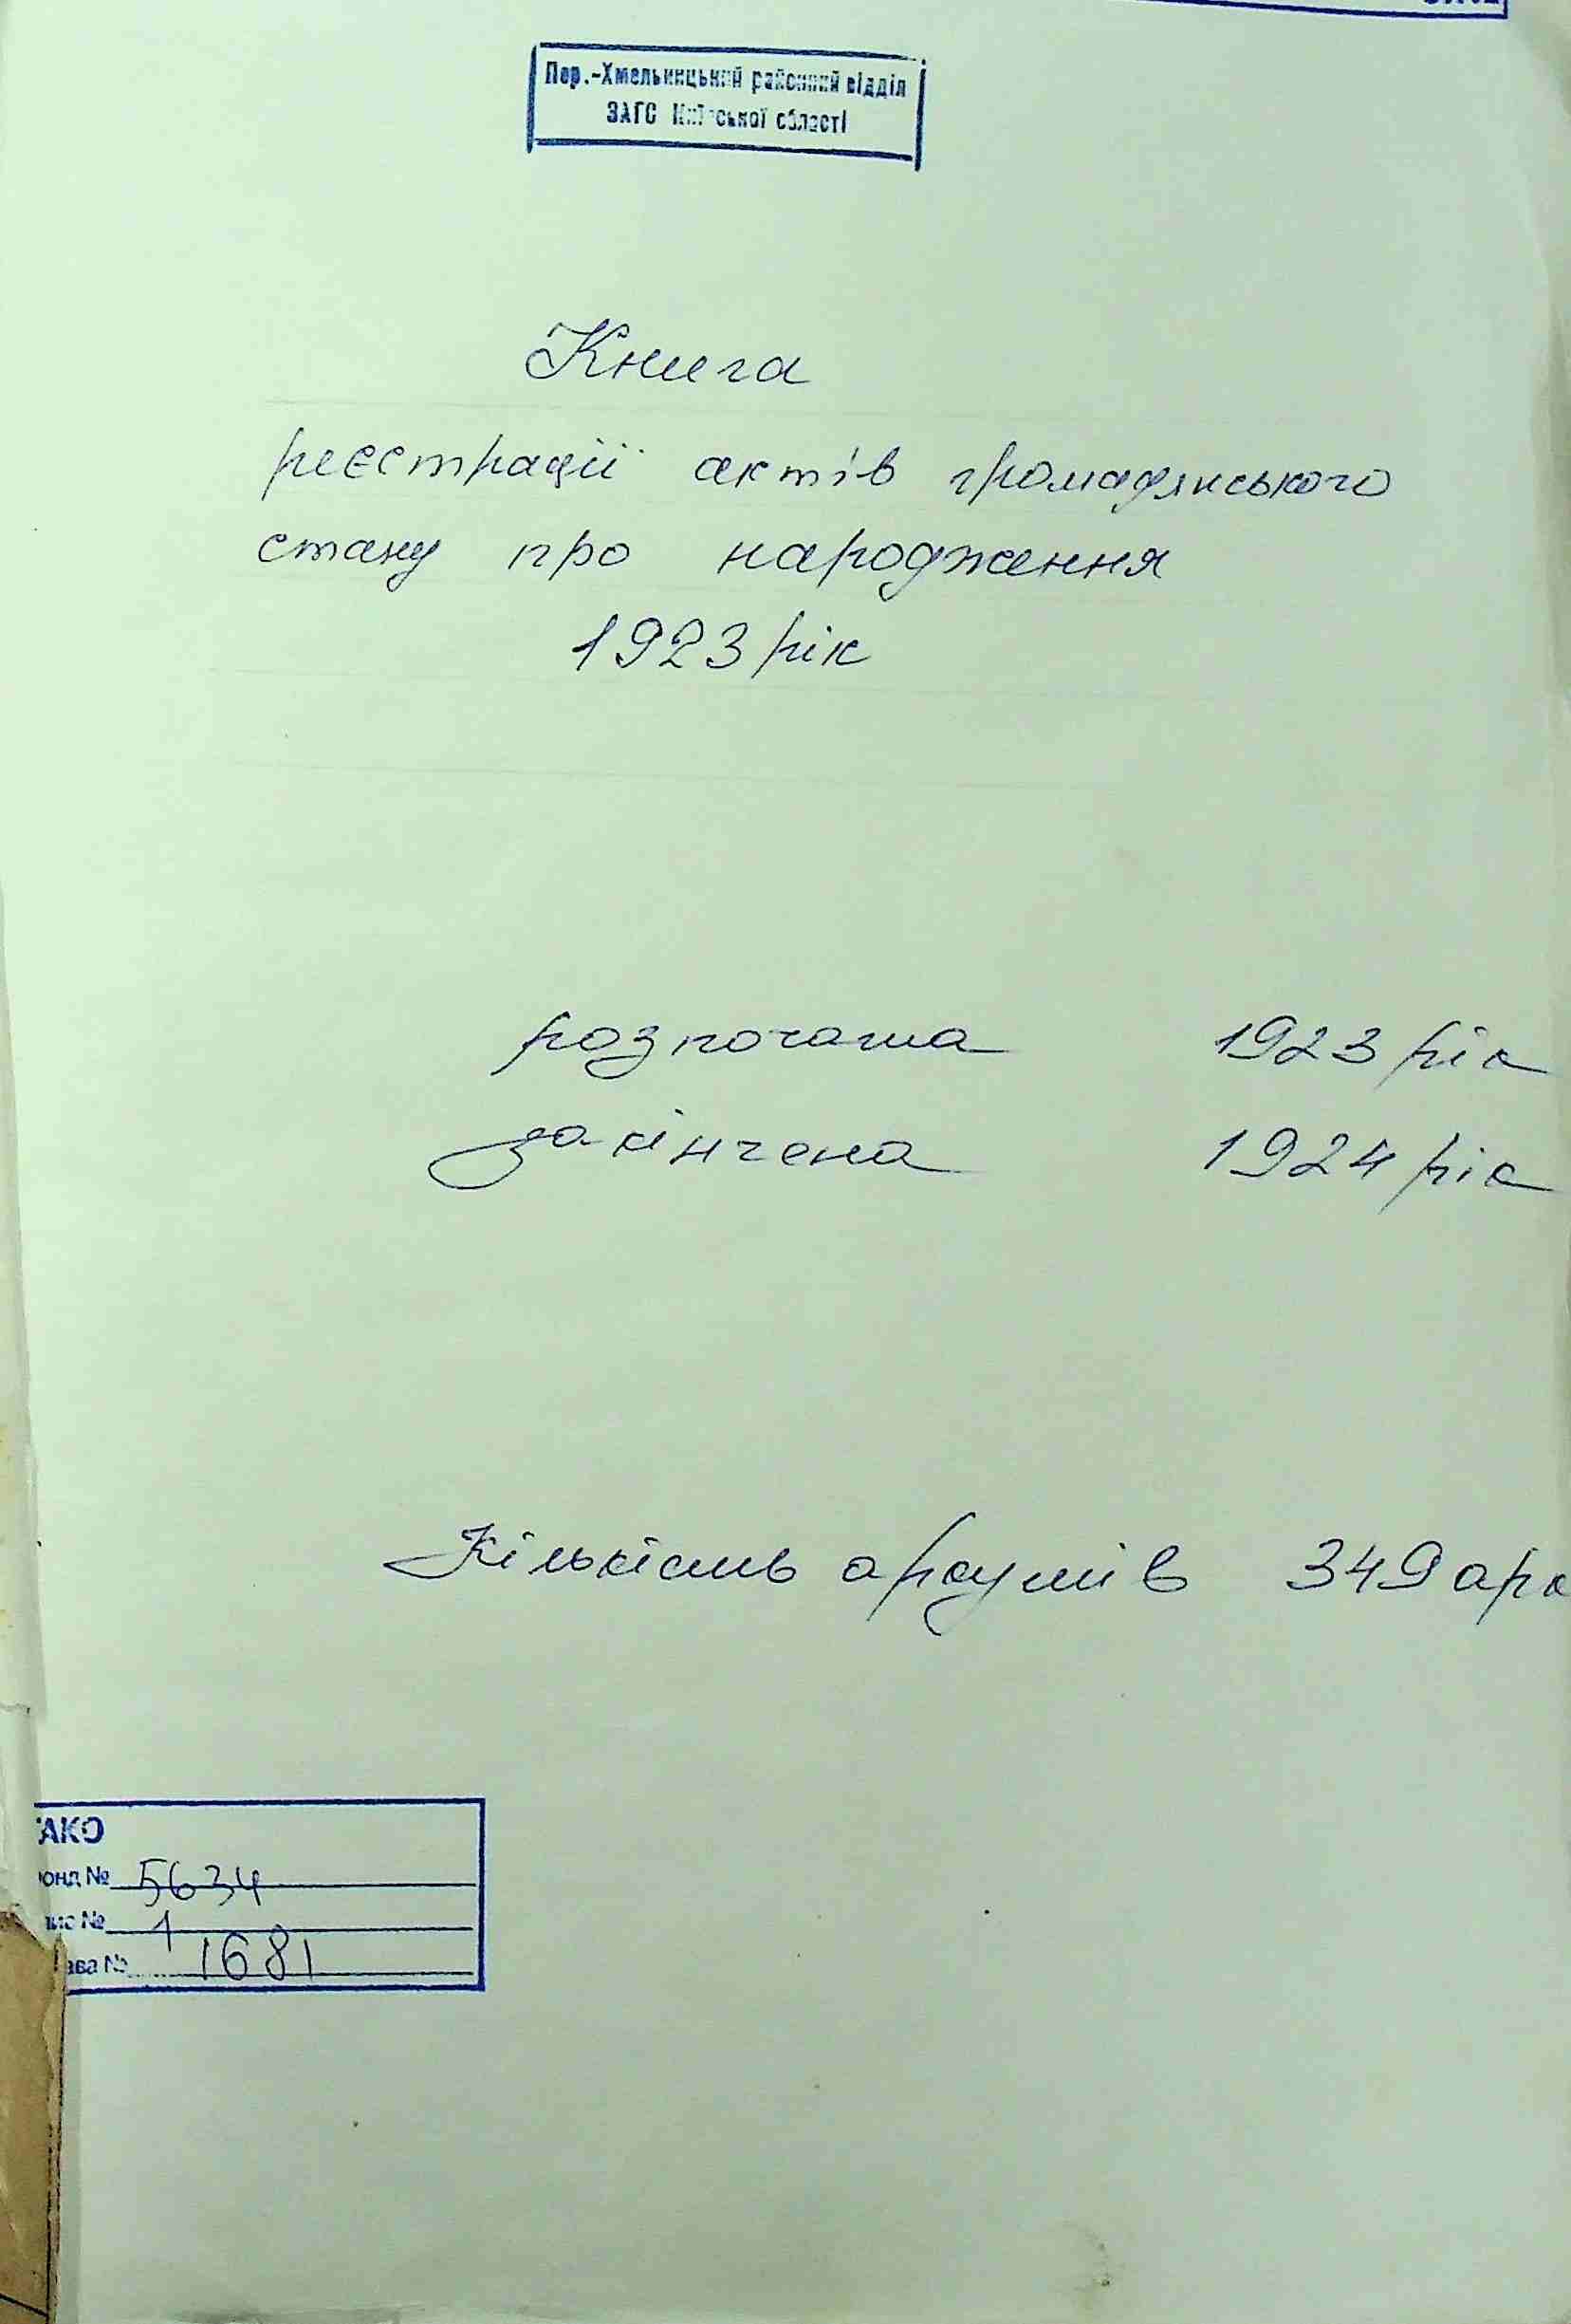 Пер.-Хмельницький районний відділ
ЗАГС Київської області
Книга
реєстрації актів громадянського
стану про народження
1923 рік
розпочата 1923 рік
закінчена 1924 рік
Кількість аркушів 349 арк
АКО
онд № 5634
ис № 1
ава № 1681